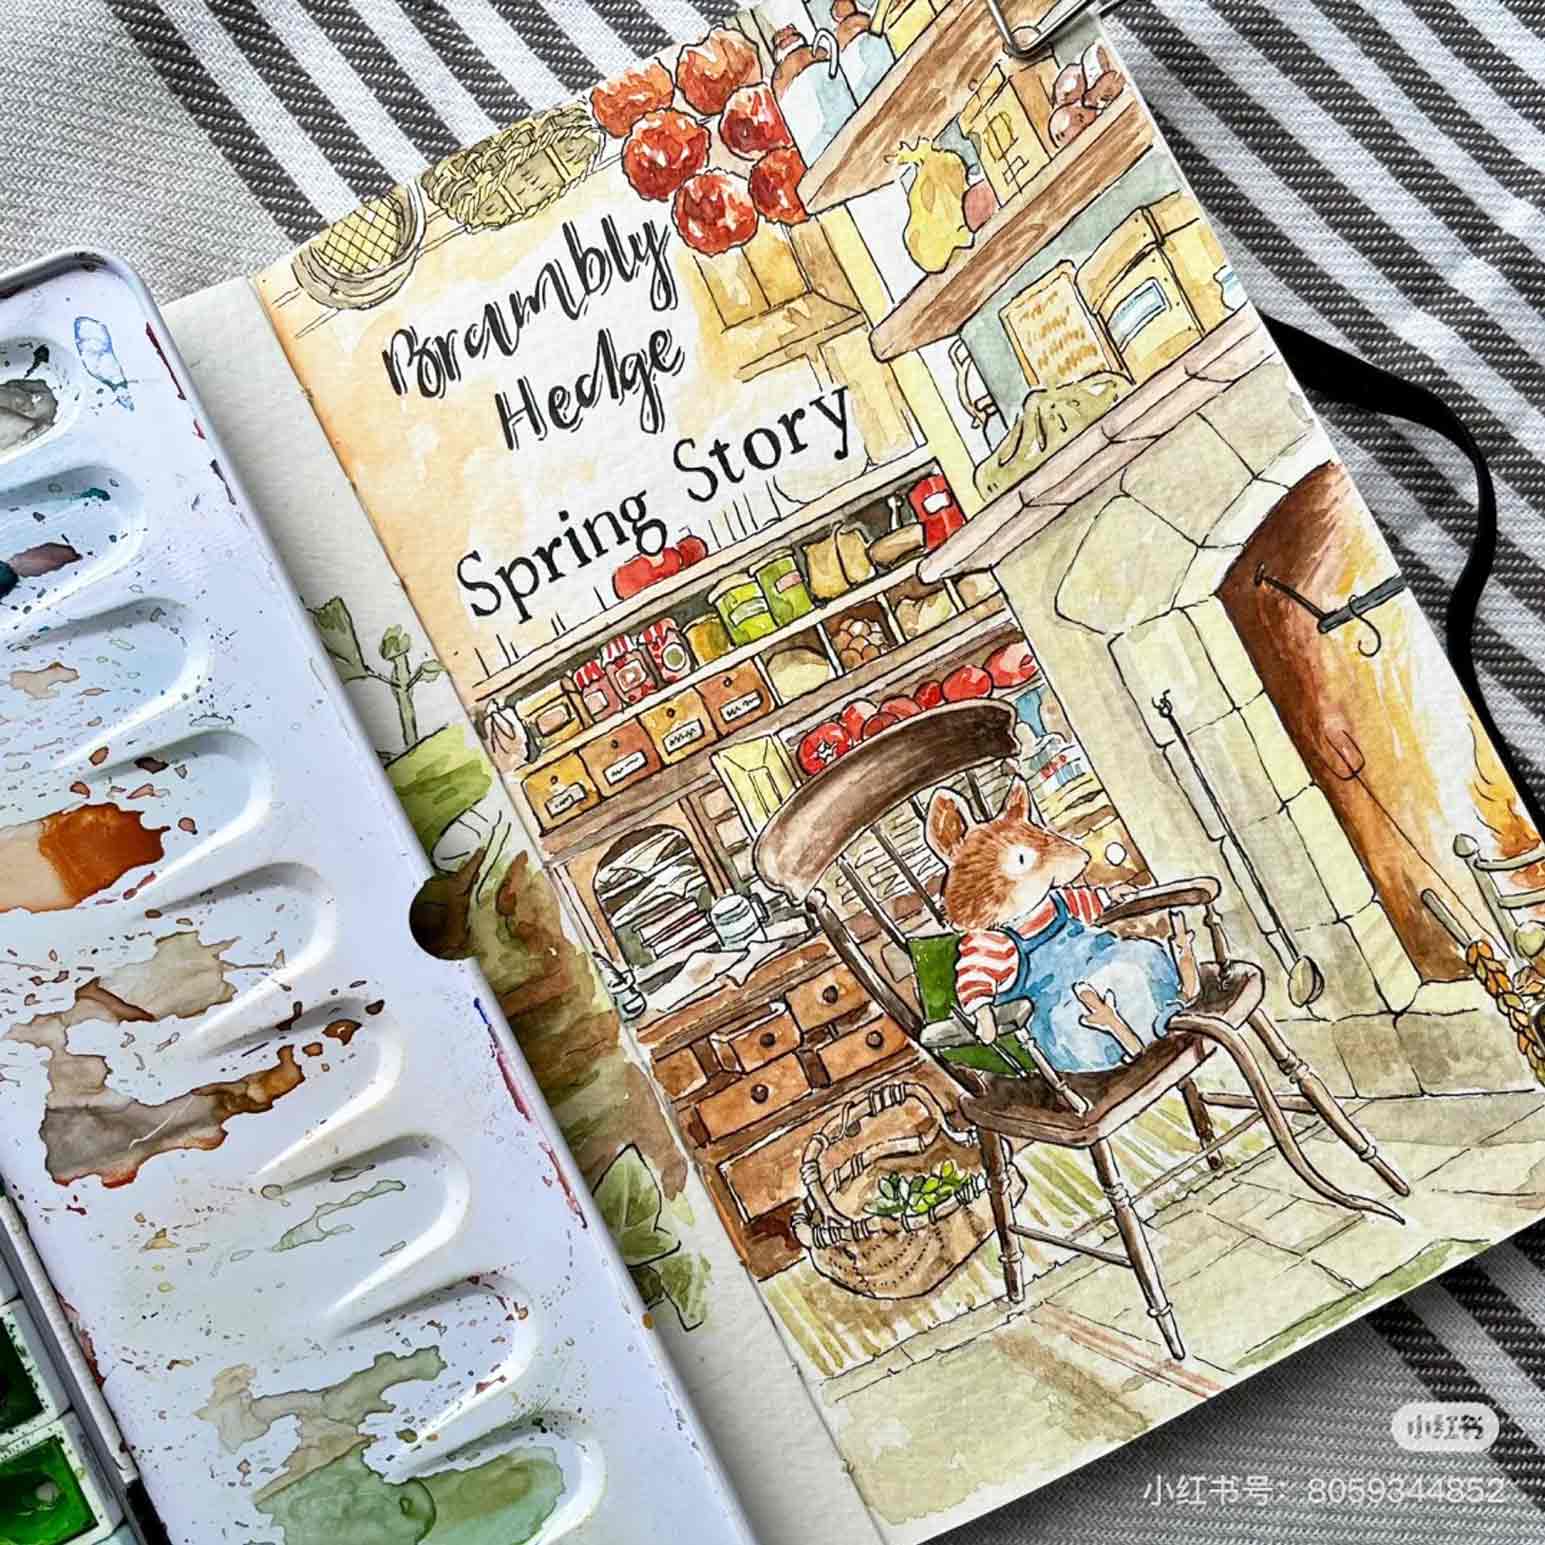 Brambly
Hedge
Spring Story
小红书
小红书号：8059344852